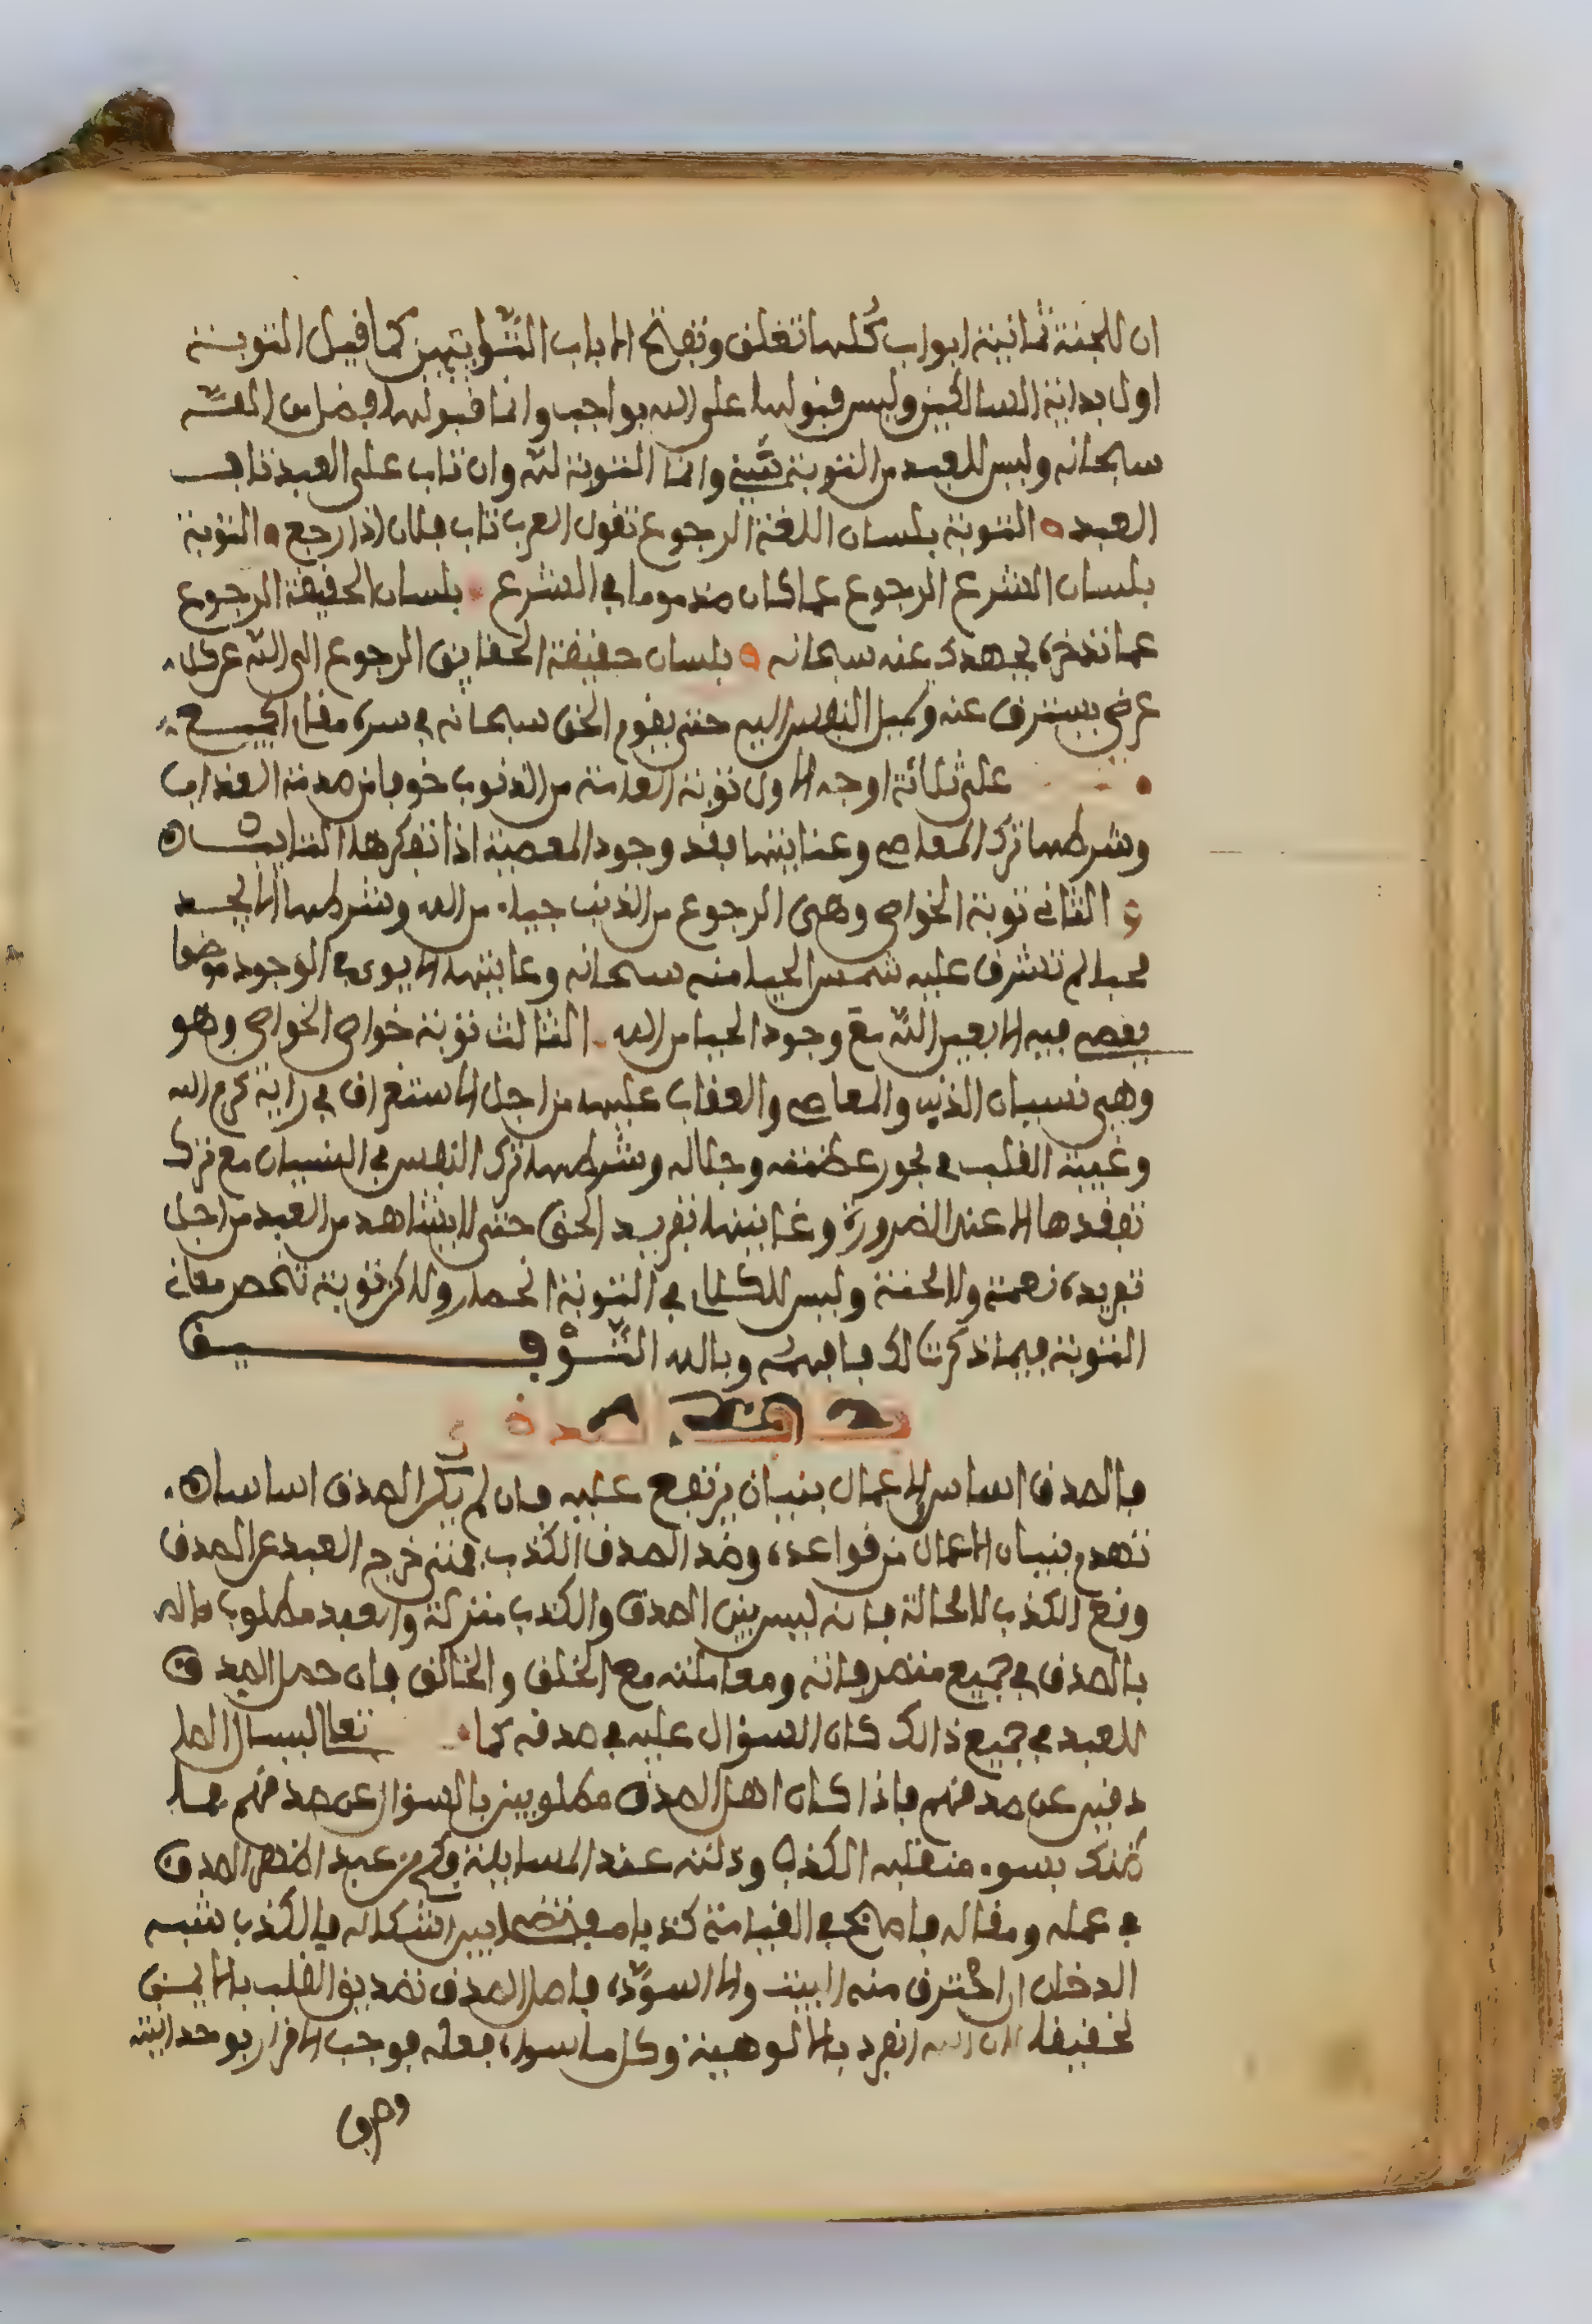 ان للجنة ثمانية ابواب كلها تغلق وتفتح الا باب التوابين كما قيل التوبة
اول بداية السالكين وليس قبولها على الله بواجب وانما قبولها فضل من الله
سبحانه وليس للعبد من التوبة شيء وانما التوبة لله وان تاب على العبد تاب
العبد التوبة بلسان اللغة الرجوع تقول العرب تاب فلان اذا رجع التوبة
بلسان الشرع الرجوع عما كان مذموما في الشرع بلسان الحقيقة الرجوع
عما تدخره عنه سبحانه بلسان حقيقة الحقايق الرجوع الى الله عن كل
عرض يسترق عنه وميل النفس اليه حتى يقوم الحق سبحانه في سره مقام الجميع
على ثلاثة اوجه الاول توبة العامة من الذنوب خوفا من صدمة العذاب
وشرطها ترك المعاصي وغايتها فقد وجود المعصية اذا تفكر هذا التايب
الثاني توبة الخواص وهي الرجوع من الذنب حياء من الله وشرطها الا يجد
محبا لم تشرق عليه شمس الحيا منه سبحانه وغايتها الا يرى في الوجود موضعا
يعصي فيه الا بعين الله مع وجود الحيا من الله الثالث توبة خواص الخواص وهو
وهي نسيان الذنب والمعاصي والعقاب عليها من اجل الاستغراق في راية كرم الله
وغيبة القلب في بحور عظمته وجلاله وشرطها ترك النفس في النسيان مع ترك
تفقدها الا عند الضرورة وغايتها تفريد الحق حتى لا يشاهد من العبد من اجل
تفريده نعمة ولا محنة وليس للكلام في التوبة انحصار ولاكن توبة تحصر معاني
التوبة فيما ذكرت لك فافهمه وبالله التوفيق
الصدق
فالصدق اساس الاعمال بنيان يرتفع عليه فان لم يكن الصدق اساسا
تهدم بنيان الاعمال من قواعده وضد الصدق الكذب فمتى خرج العبد عن الصدق
وقع الكذب لا محالة فانه ليس بين الصدق والكذب منزلة والعبد مطلوب
بالصدق في جميع متصرفاته ومعاملته مع الخلق والخالق فان حصل الصدق
للعبد في جميع ذالك كان السؤال عليه في صدقه كما تعا ليسال الصا
دقين عن صدقهم فاذا كان اهل الصدق مطلوبين بالسؤال عن صدقهم فما
ظنك بسوء منقلب الكذب وذلته عند المسايلة وكم من عبد اظهر الصدق
في عمله ومقاله فاصبح في القيامة كذابا مفتضحا بين اشكاله فالكذب شبه
الدخان ان احترق منه البيت والا اسوده فاصل الصدق تصديق القلب بالايمان
لحقيقة ان الله انفرد بالالوهية وكل ما سواه فعله فوجب الاقرار بوحدانيته
وصرف